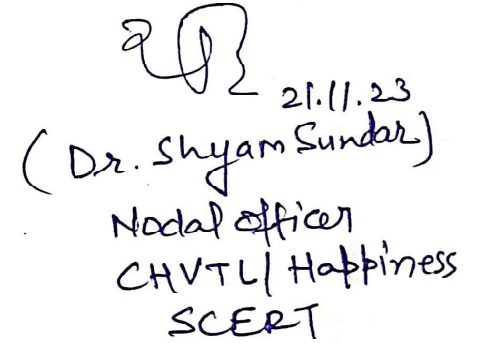 21.11.23
(Dr. Shyam Sundar)
Nodal Officer
CHVTL/ Happiness
SCERT